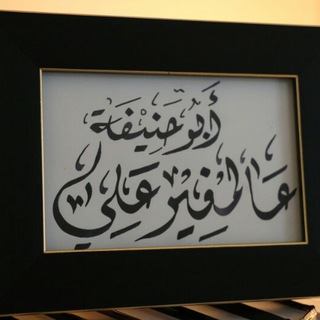 أَبُو حَنِيفَة
عَالمفِير عَلِي